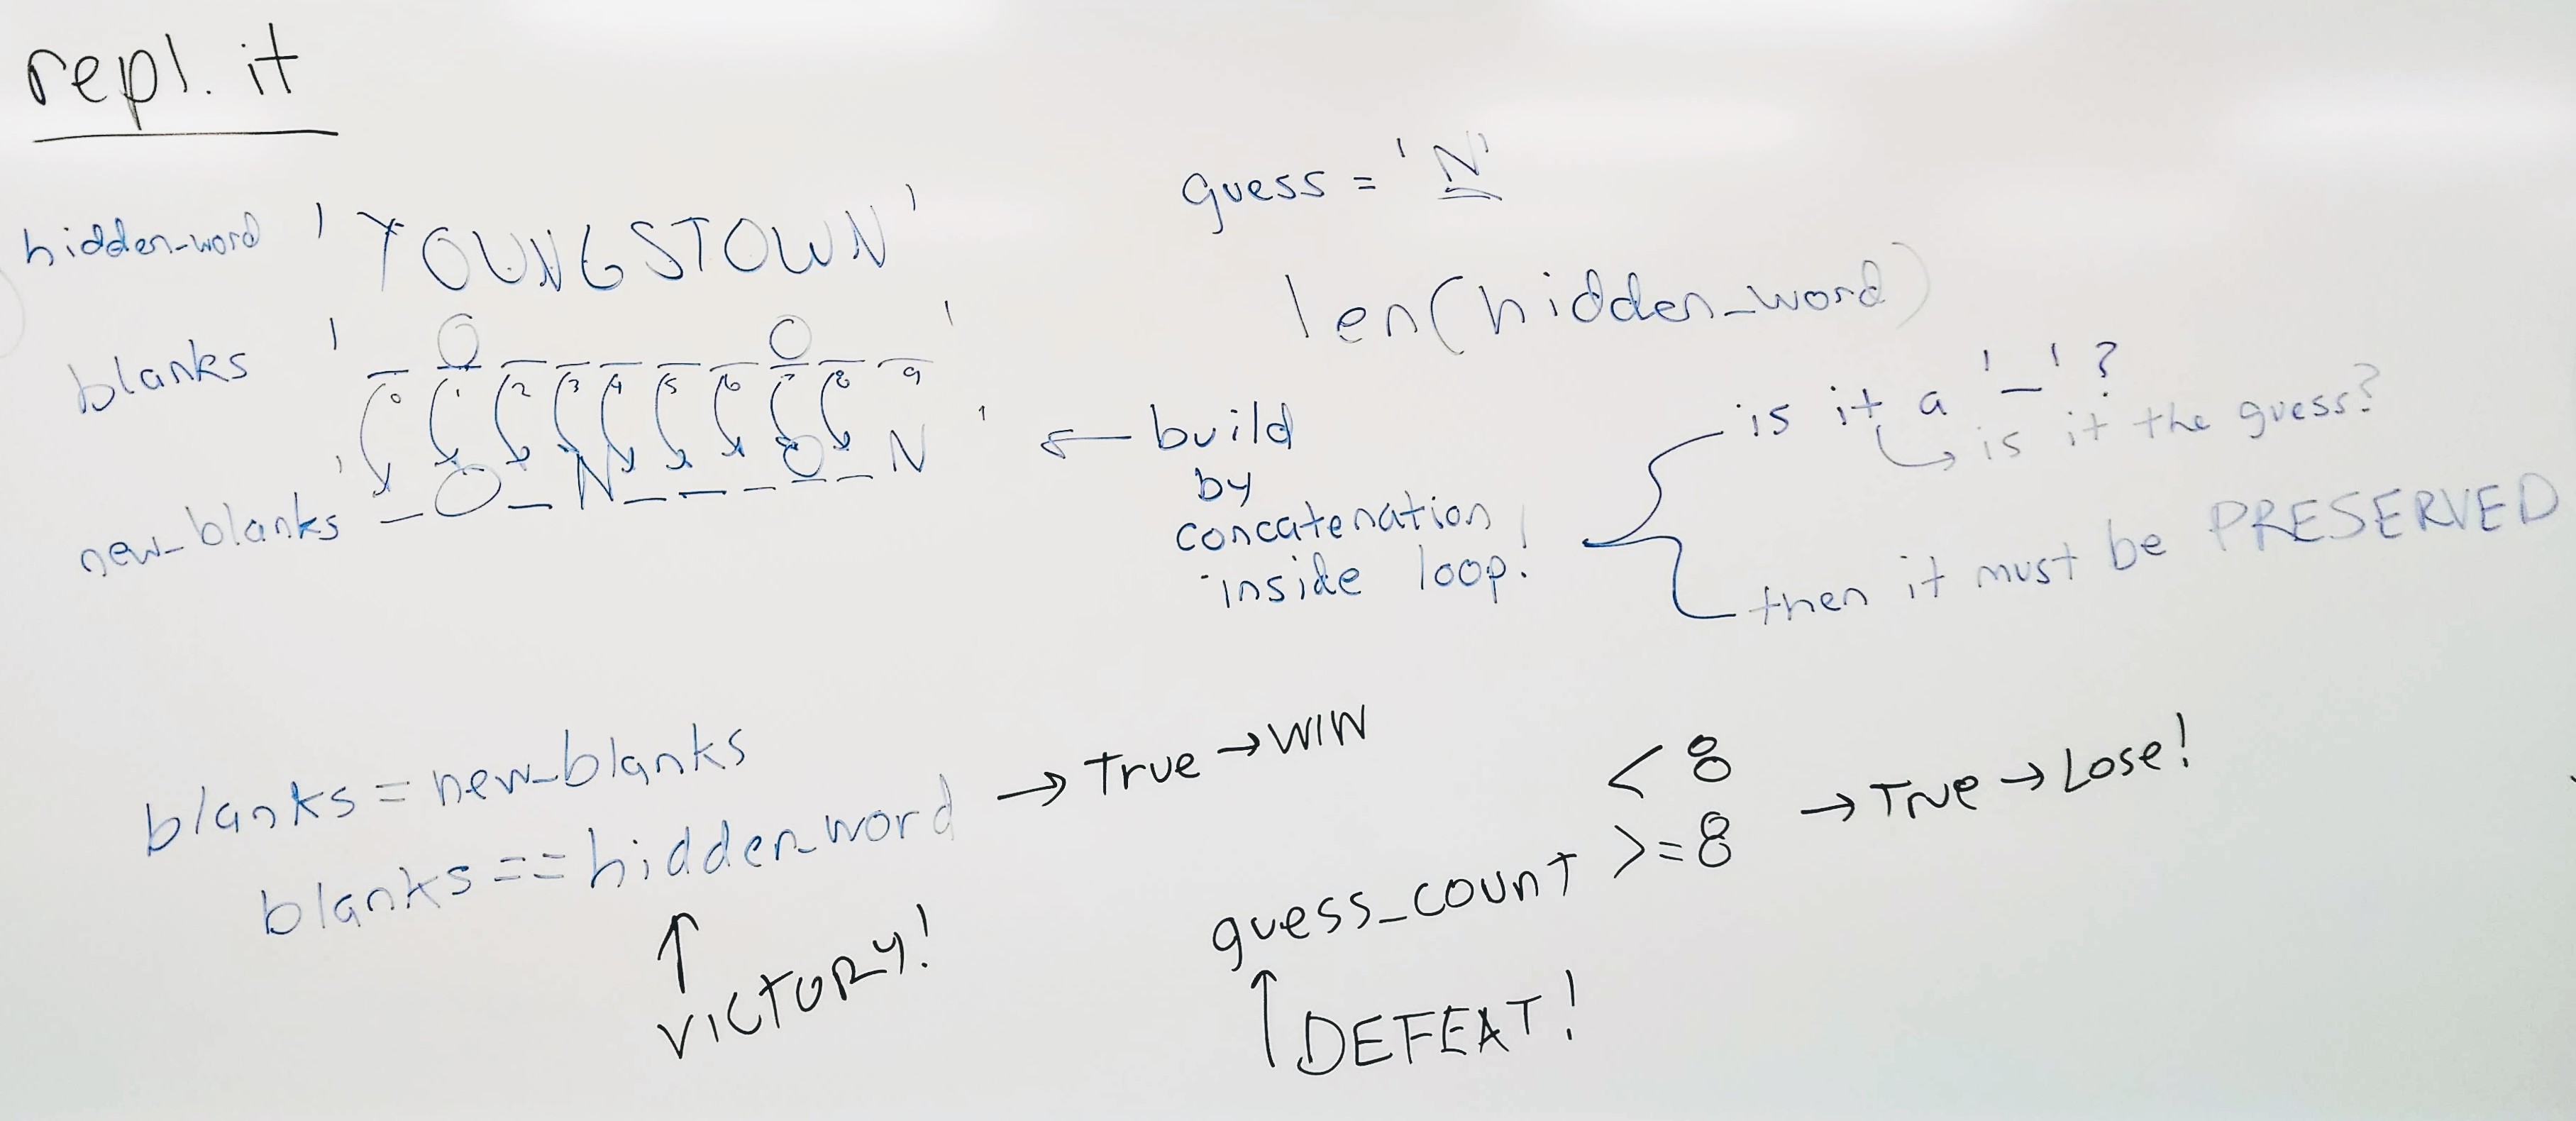 repl.it
hidden_word 'YOUNGSTOWN'
guess = 'N'
len(hidden_word)
blanks '_ O _ _ _ _ _ O _ _'
0 1 2 3 4 5 6 7 8 9
new_blanks '_ O _ N _ _ _ O _ N'
← build
by
concatenation
inside loop!
is it a '_'?
↳ is it the guess?
then it must be PRESERVED
blanks = new_blanks
blanks == hidden_word → True → WIN
↑
VICTORY!
< 8
guess_count >= 8 → True → Lose!
↑ DEFEAT!